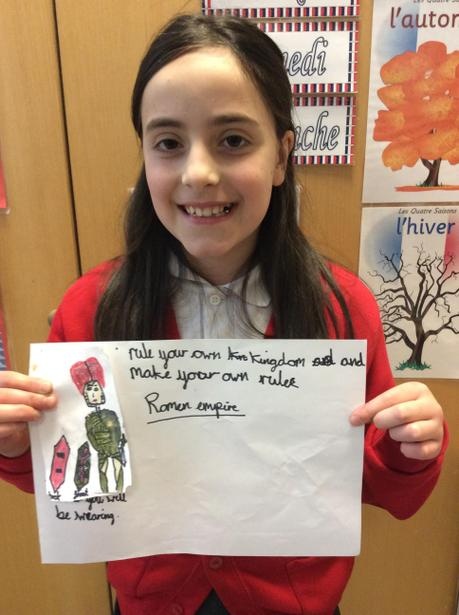 Les Quatre Saisons
l'auto
edi
nche
Les Quatre Saisons
l'hiver
rule your own Kingdom and
make your own rules
Romen empire
you will
be swearing.